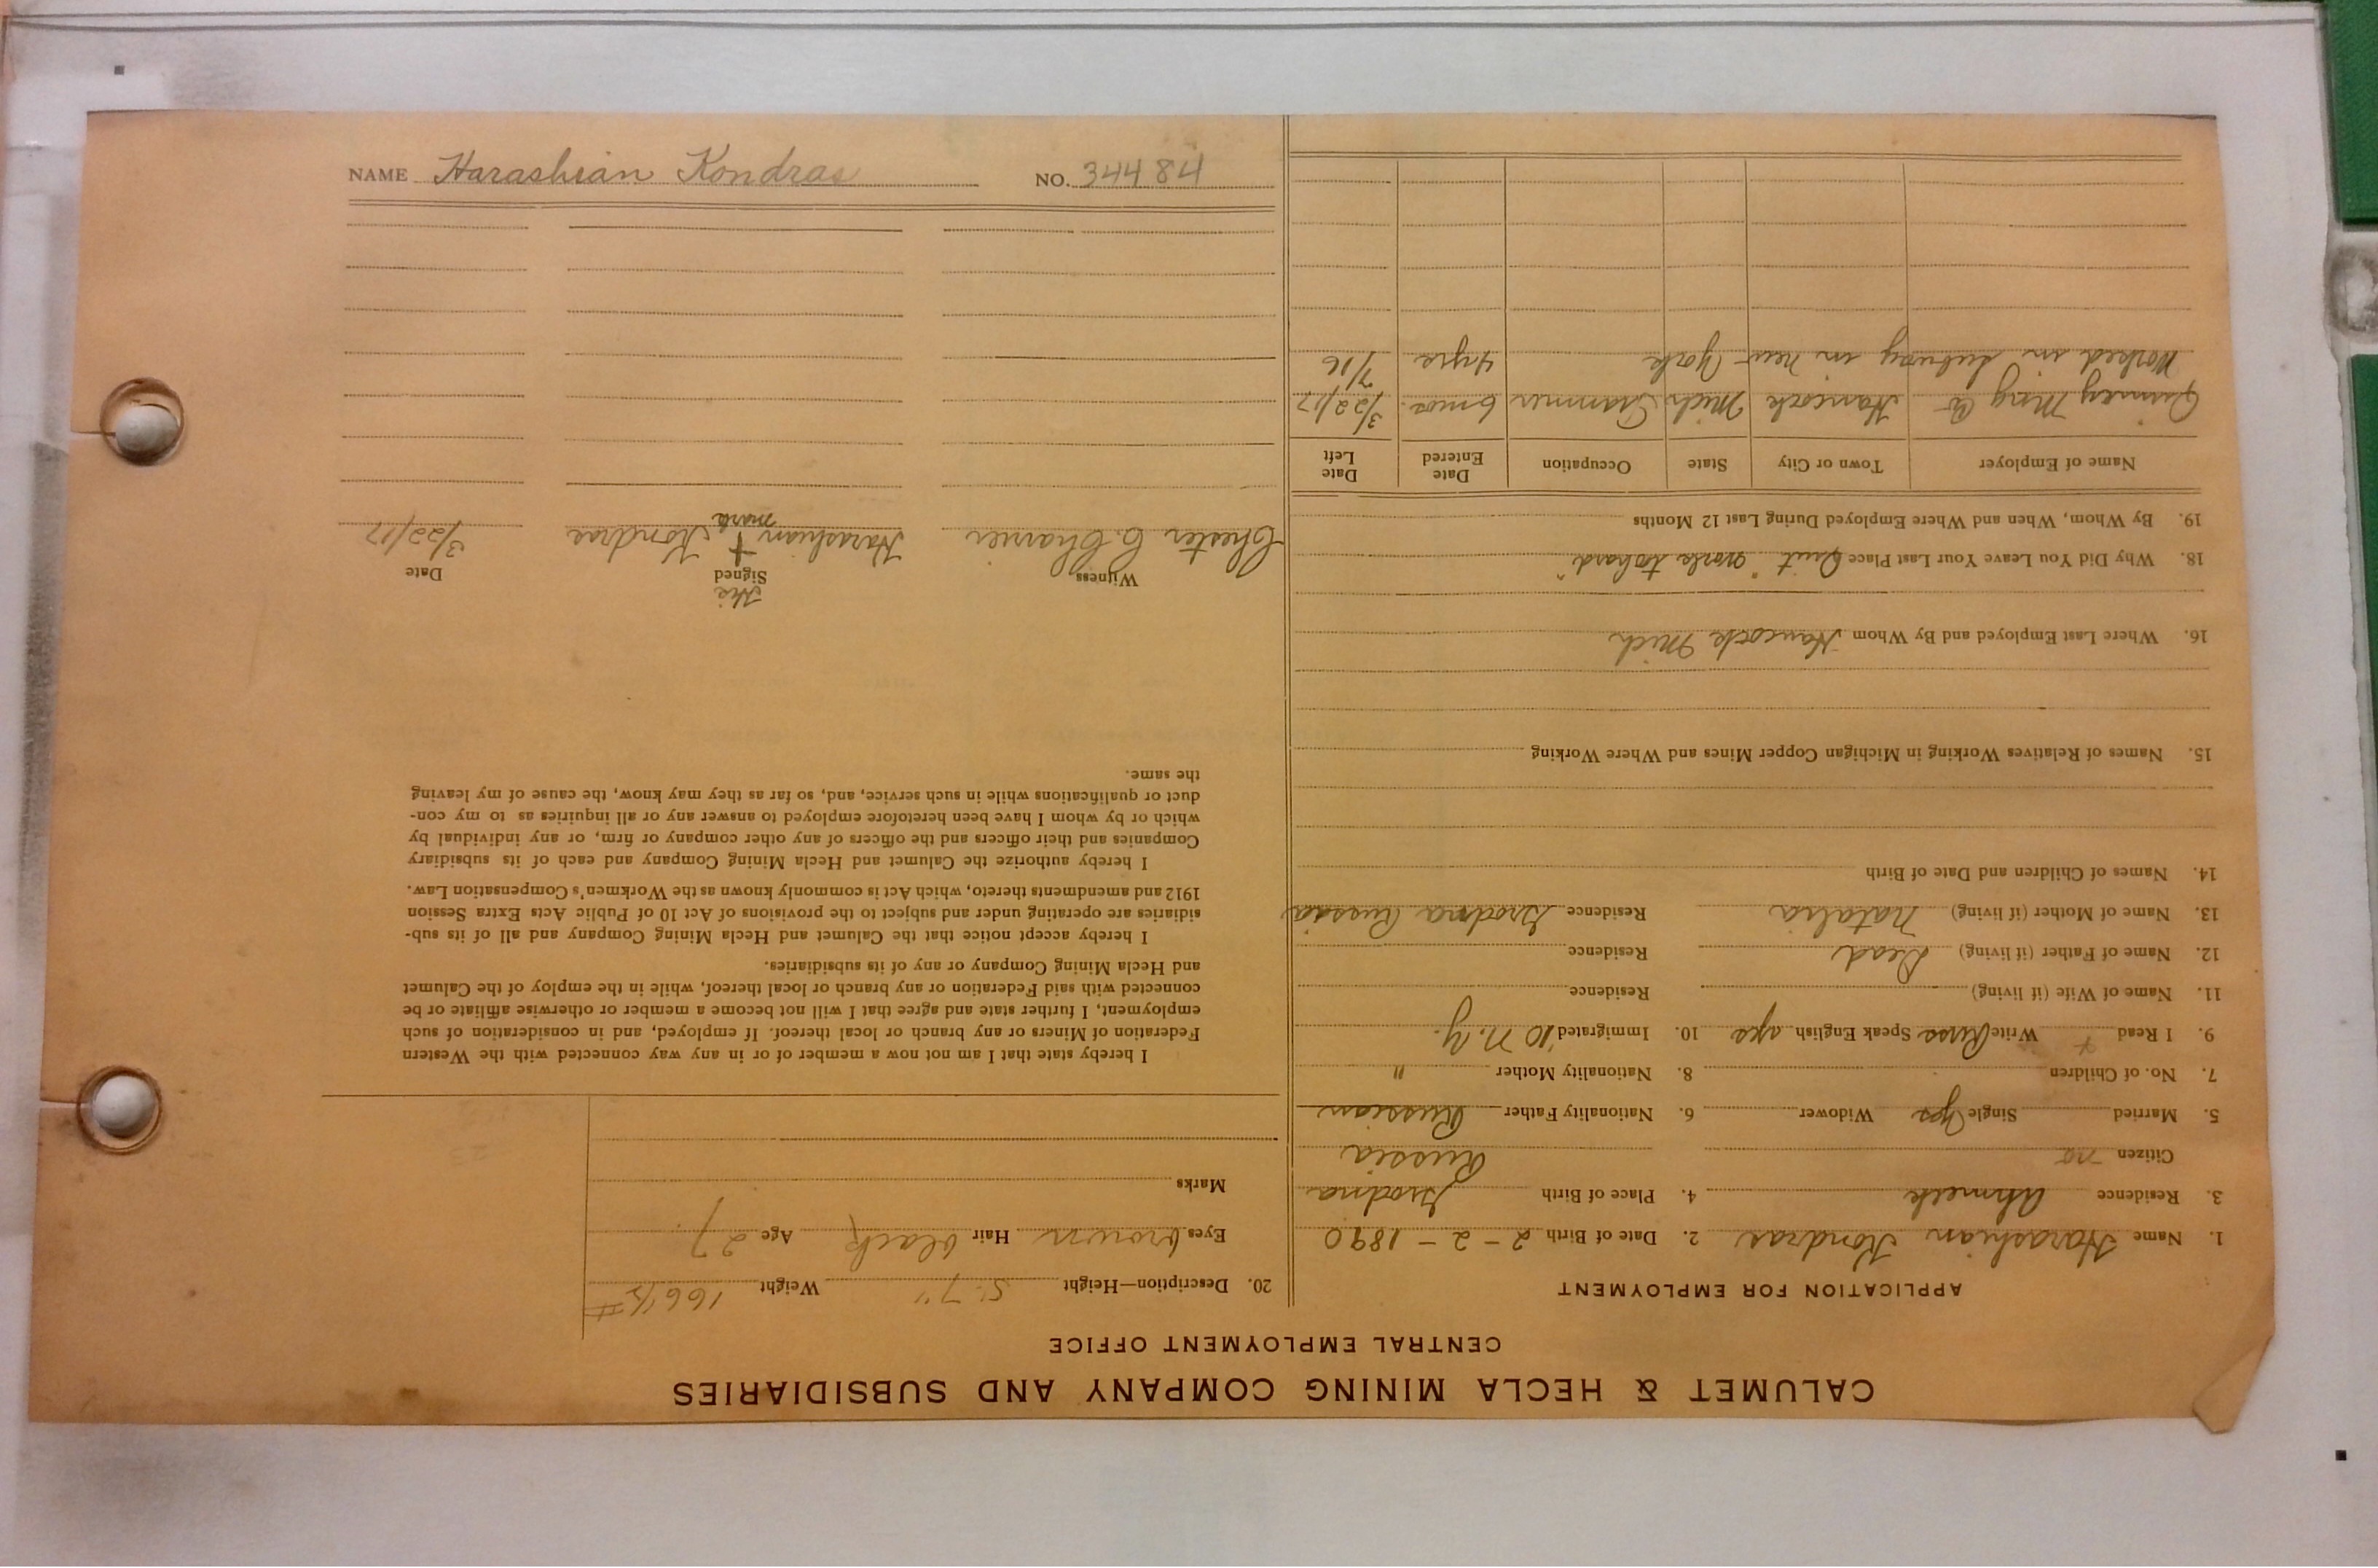 NAME Harashian Kondras NO. 34484
CALUMET & HECLA MINING COMPANY AND SUBSIDIARIES
CENTRAL EMPLOYMENT OFFICE
APPLICATION FOR EMPLOYMENT
1. Name Harashian Kondras 2. Date of Birth 2-2-1890
3. Residence Ahmeek 4. Place of Birth Grodna
Citizen no Russia
5. Married Single yes Widower 6. Nationality Father Russian
7. No. of Children 8. Nationality Mother "
9. I Read + Write Russ Speak English yes 10. Immigrated '10 N.Y.
11. Name of Wife (if living) Residence
12. Name of Father (if living) Dead Residence
13. Name of Mother (if living) Natalia Residence Grodna Russia
14. Names of Children and Date of Birth
15. Names of Relatives Working in Michigan Copper Mines and Where Working
16. Where Last Employed and By Whom Hancock Mich
18. Why Did You Leave Your Last Place Quit "work to hard"
19. By Whom, When and Where Employed During Last 12 Months
Name of Employer Town or City State Occupation Date Entered Date Left
Quincy Mng Co Hancock Mich Trammer 6 mos. 3/22/17
Worked in subway in New York 4 yrs 7/16
20. Description—Height 5'-7" Weight 166½#
Eyes brown Hair black Age 27
Marks
I hereby state that I am not now a member of or in any way connected with the Western
Federation of Miners or any branch or local thereof. If employed, and in consideration of such
employment, I further state and agree that I will not become a member or otherwise affiliate or be
connected with said Federation or any branch or local thereof, while in the employ of the Calumet
and Hecla Mining Company or any of its subsidiaries.
I hereby accept notice that the Calumet and Hecla Mining Company and all of its sub-
sidiaries are operating under and subject to the provisions of Act 10 of Public Acts Extra Session
1912 and amendments thereto, which Act is commonly known as the Workmen's Compensation Law.
I hereby authorize the Calumet and Hecla Mining Company and each of its subsidiary
Companies and their officers and the officers of any other company or firm, or any individual by
which or by whom I have been heretofore employed to answer any or all inquiries as to my con-
duct or qualifications while in such service, and, so far as they may know, the cause of my leaving
the same.
His
Witness Signed Date
Chester C. Harashian + Kondras 3/22/17
mark